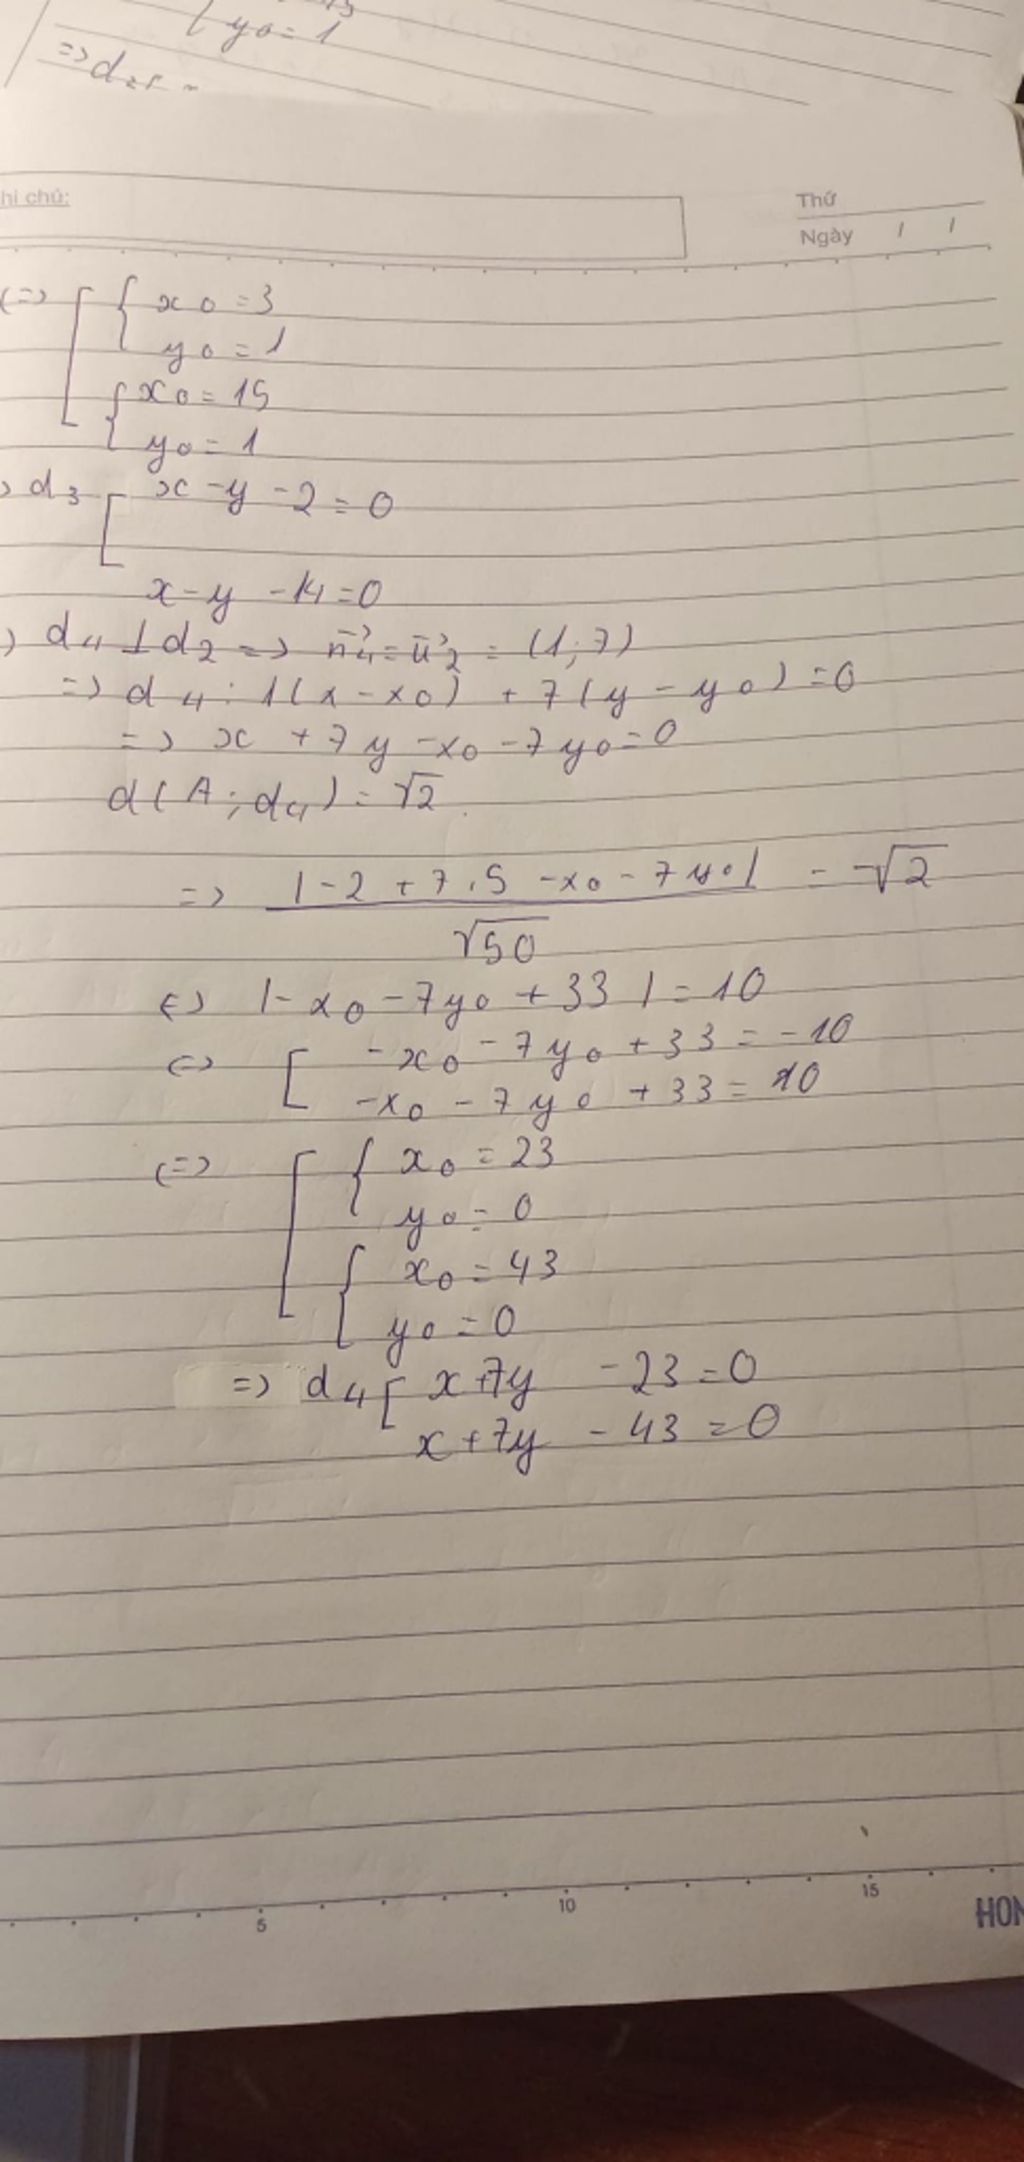 y0 = 1
=> d
hi chú:
Thứ
Ngày / /
<=> [ { x0 = 3
y0 = 1
{ x0 = 15
y0 = 1
> d3 [ x - y - 2 = 0
x - y - 14 = 0
) d4 ⊥ d2 => n⃗4 = u⃗2 = (1; 7)
=> d4 : 1(x - x0) + 7(y - y0) = 0
=> x + 7y - x0 - 7y0 = 0
d(A; d4) = √2.
=> |-2 + 7.5 - x0 - 7y0| / √50 = √2
<=> |-x0 - 7y0 + 33| = 10
<=> [ -x0 - 7y0 + 33 = -10
-x0 - 7y0 + 33 = 10
<=> [ { x0 = 23
y0 = 0
{ x0 = 43
y0 = 0
=> d4 [ x + 7y - 23 = 0
x + 7y - 43 = 0
5 10 15
HON